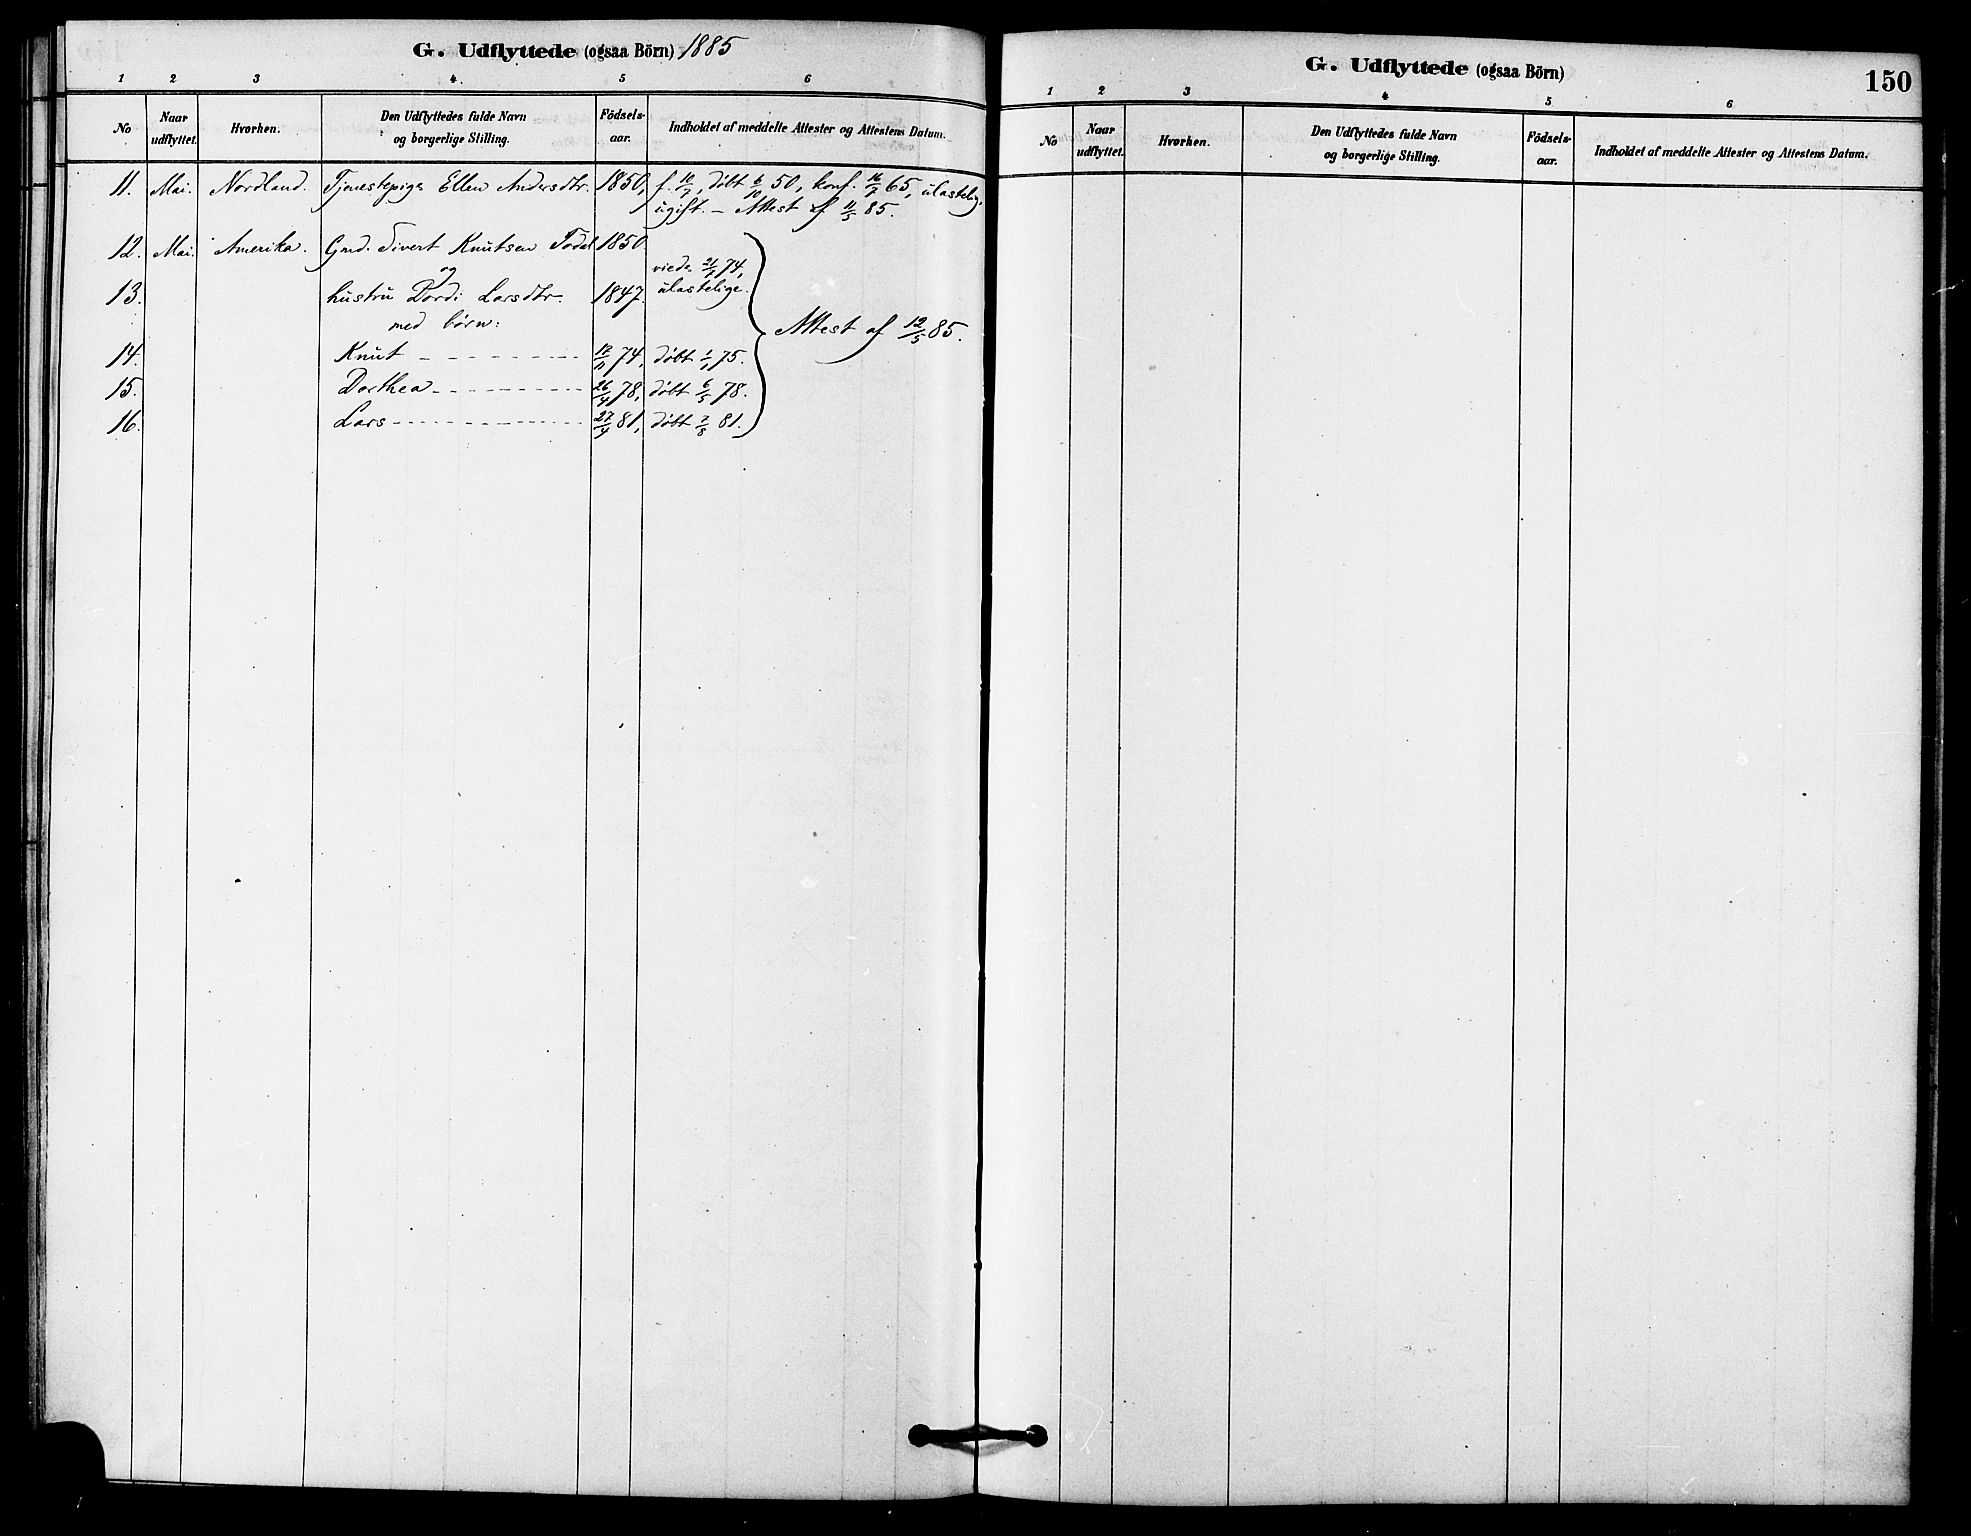 G. Udflyttede (ogsaa Börn) 1885
1 2 3 4. 5 6
No
Naar udflyttet.
Hvorhen.
Den Udflyttedes fulde Navn og borgerlige Stilling.
Födsels-aar.
Indholdet af meddelte Attester og Attestens Datum.
11. Mai. Nordland. Tjenestepige Ellen Andersdtr. 1850, f. 10/7, døbt 6/10 50, konf. 16/7 65, ulastelig,
ugift. – Attest af 11/5 85.
12. Mai. Amerika. Gmd. Sivert Knutsen Todal 1850
og viede 21/ 74,
13. hustru Dordi Larsdtr. 1847. ulastelige.
med børn: Attest af 12/5 85.
14. Knut 12/11 74, døbt 1/1 75.
15. Dorthea 26/4 78, døbt 6/5 78.
16. Lars 27/4 81, døbt 7/8 81.
G. Udflyttede (ogsaa Börn)
150
1 2 3 4 5 6
No
Naar udflyttet.
Hvorhen.
Den Udflyttedes fulde Navn og borgerlige Stilling.
Födsels-aar.
Indholdet af meddelte Attester og Attestens Datum.